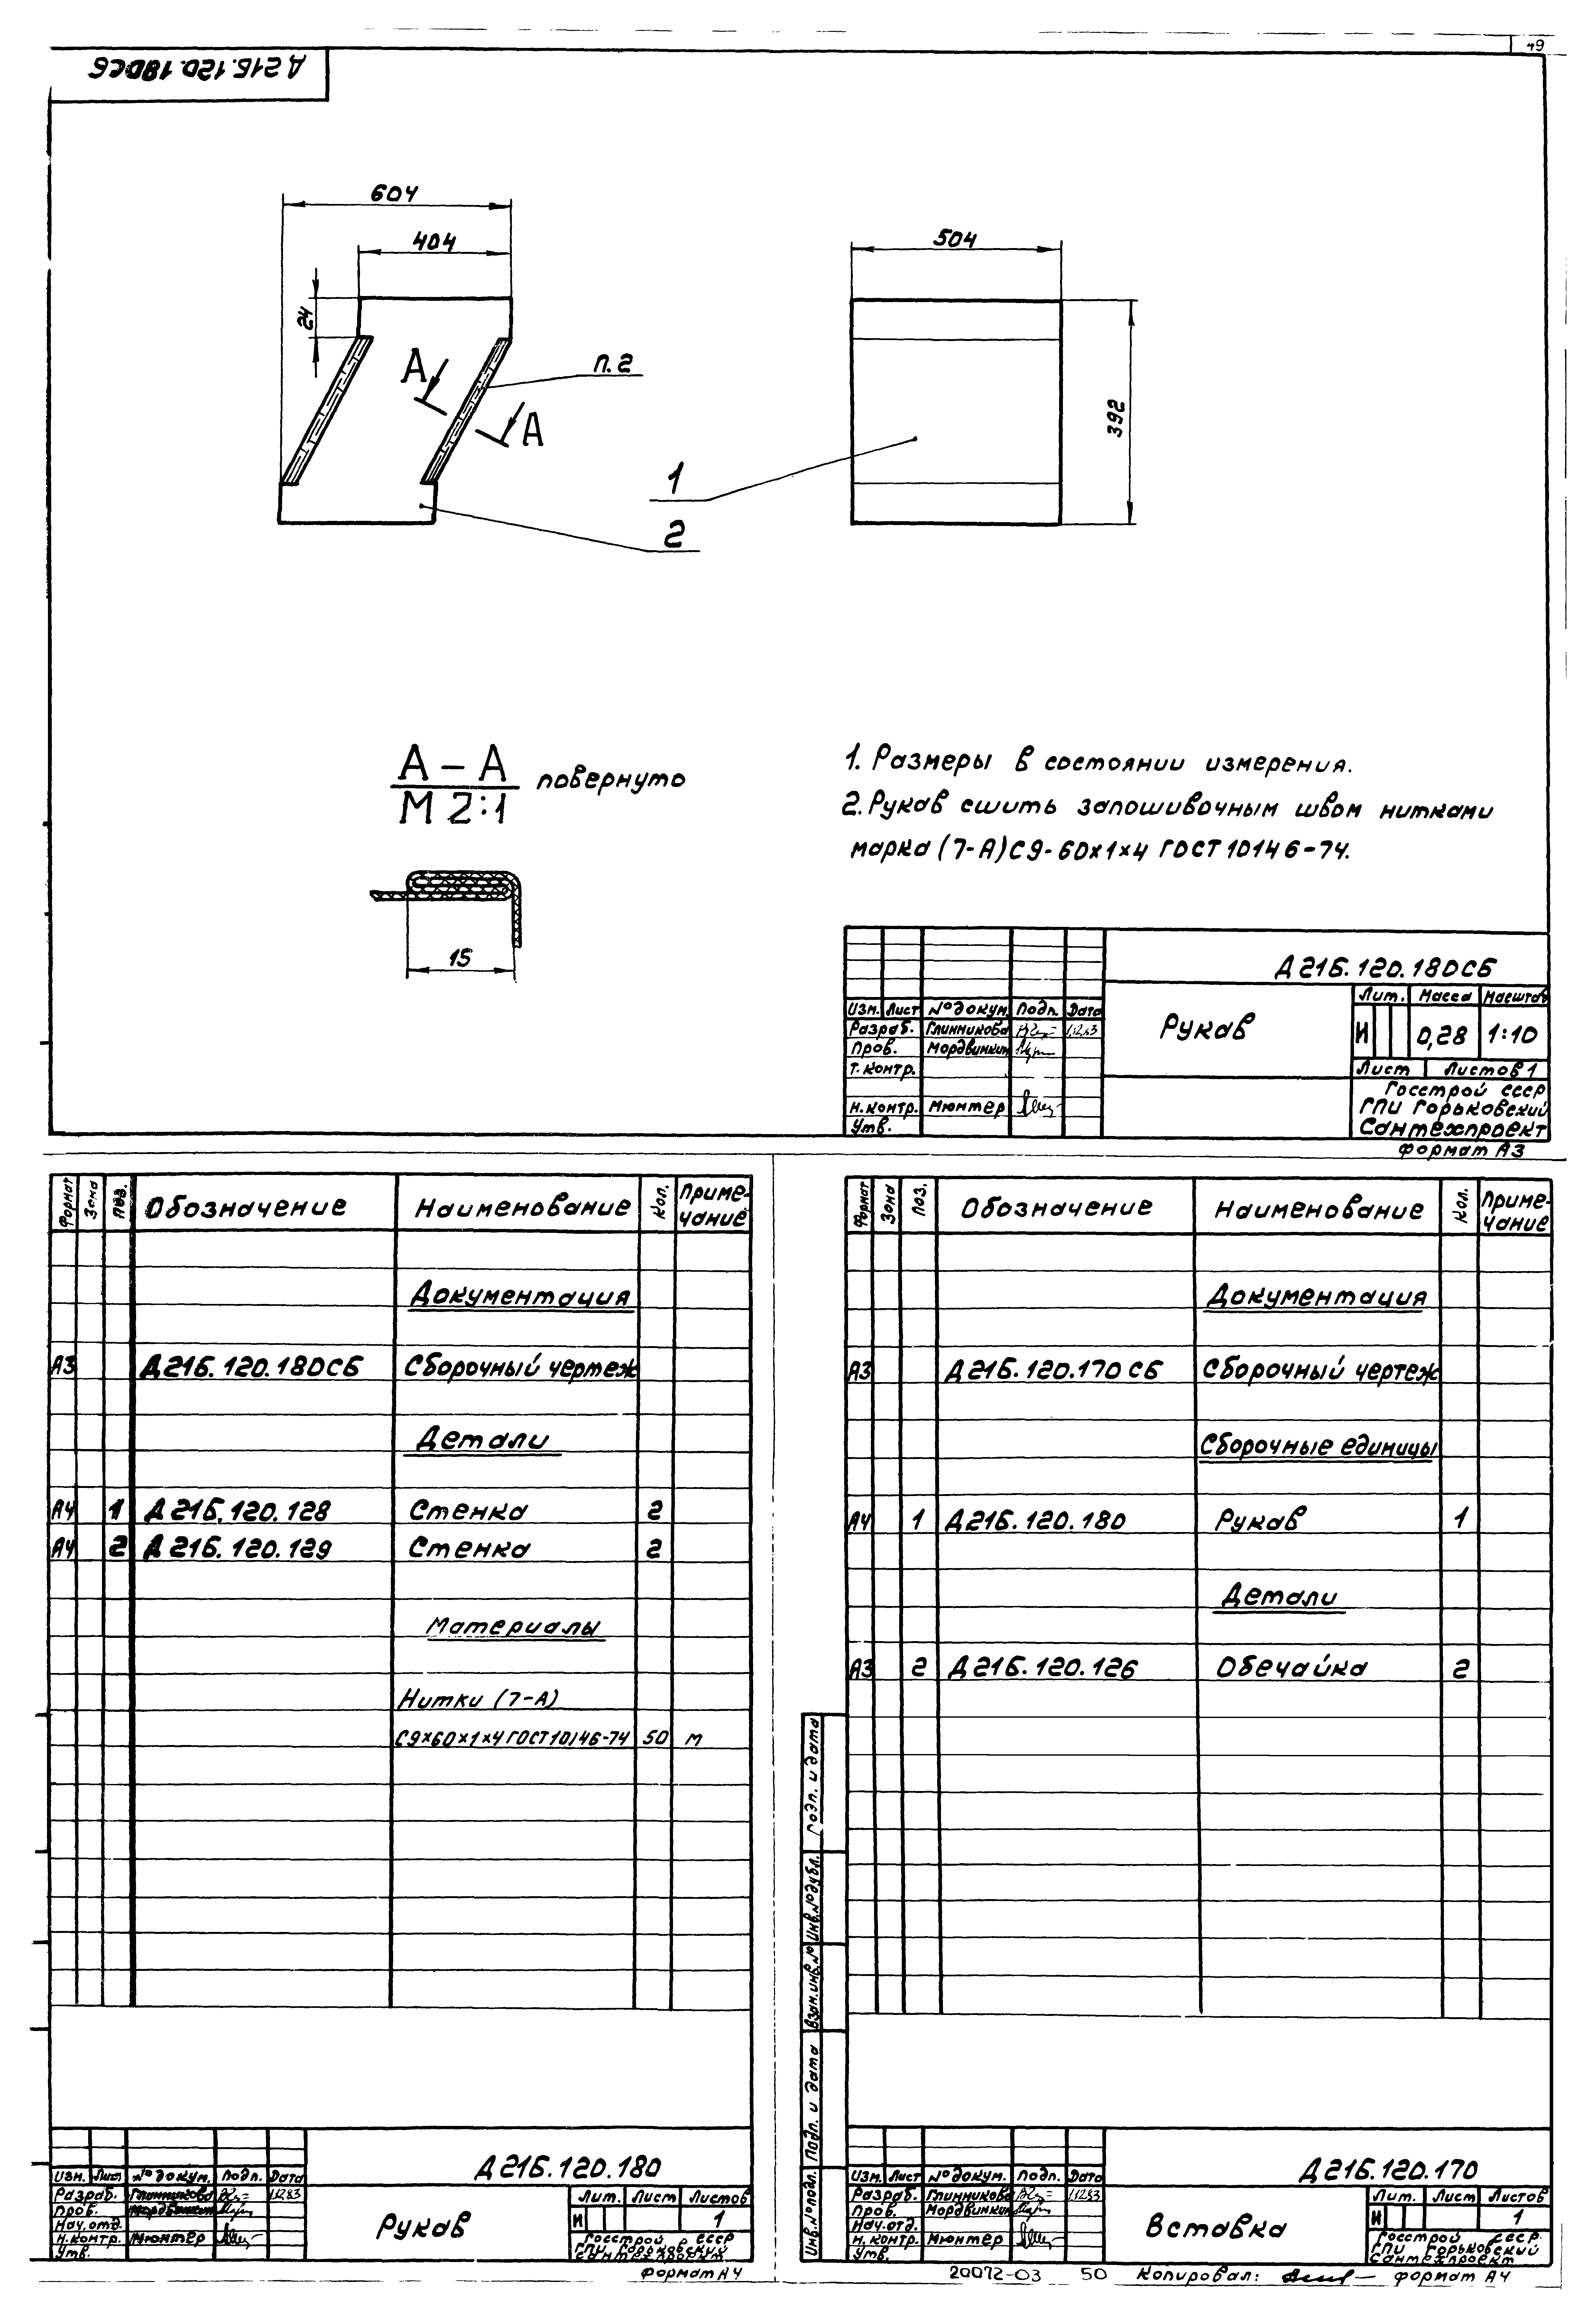 49
Д21Б.120.180СБ
604
404
24
А
А
п.2
1
2
504
392
А – А
М 2:1
повернуто
15
1. Размеры в состоянии измерения.
2. Рукав сшить запошивочным швом нитками
марка (7-А)С9-60х1х4 ГОСТ 10146-74.
Д21Б.120.180СБ
Изм. Лист №докум. Подп. Дата
Разраб. Глинникова
Пров. Мордвинкин
Т.контр.
Н.контр. Мюнтер
Утв.
Рукав
Лит. Масса Масштаб
И 0,28 1:10
Лист Листов 1
Госстрой СССР
ГПИ Горьковский
Сантехпроект
Формат А3
Формат Зона Поз. Обозначение Наименование Кол. Приме-
чание
Документация
А3 Д21Б.120.180СБ Сборочный чертеж
Детали
А4 1 Д21Б.120.128 Стенка 2
А4 2 Д21Б.120.129 Стенка 2
Материалы
Нитки (7-А)
С9х60х1х4 ГОСТ 10146-74 50 м
Д21Б.120.180
Изм. Лист №докум. Подп. Дата
Разраб. Глинникова
Пров. Мордвинкин
Нач.отд.
Н.контр. Мюнтер
Утв.
Рукав
Лит. Лист Листов
И 1
Госстрой СССР
ГПИ Горьковский
Сантехпроект
Формат А4
Формат Зона Поз. Обозначение Наименование Кол. Приме-
чание
Документация
А3 Д21Б.120.170 СБ Сборочный чертеж
Сборочные единицы
А4 1 Д21Б.120.180 Рукав 1
Детали
А3 2 Д21Б.120.126 Обечайка 2
Инв.№подл. Подп. и дата Взам.инв.№ Инв.№дубл. Подп. и дата
Д21Б.120.170
Изм. Лист №докум. Подп. Дата
Разраб. Глинникова
Пров. Мордвинкин
Нач.отд.
Н.контр. Мюнтер
Утв.
Вставка
Лит. Лист Листов
И 1
Госстрой СССР
ГПИ Горьковский
Сантехпроект
20072-03 50 Копировал: формат А4